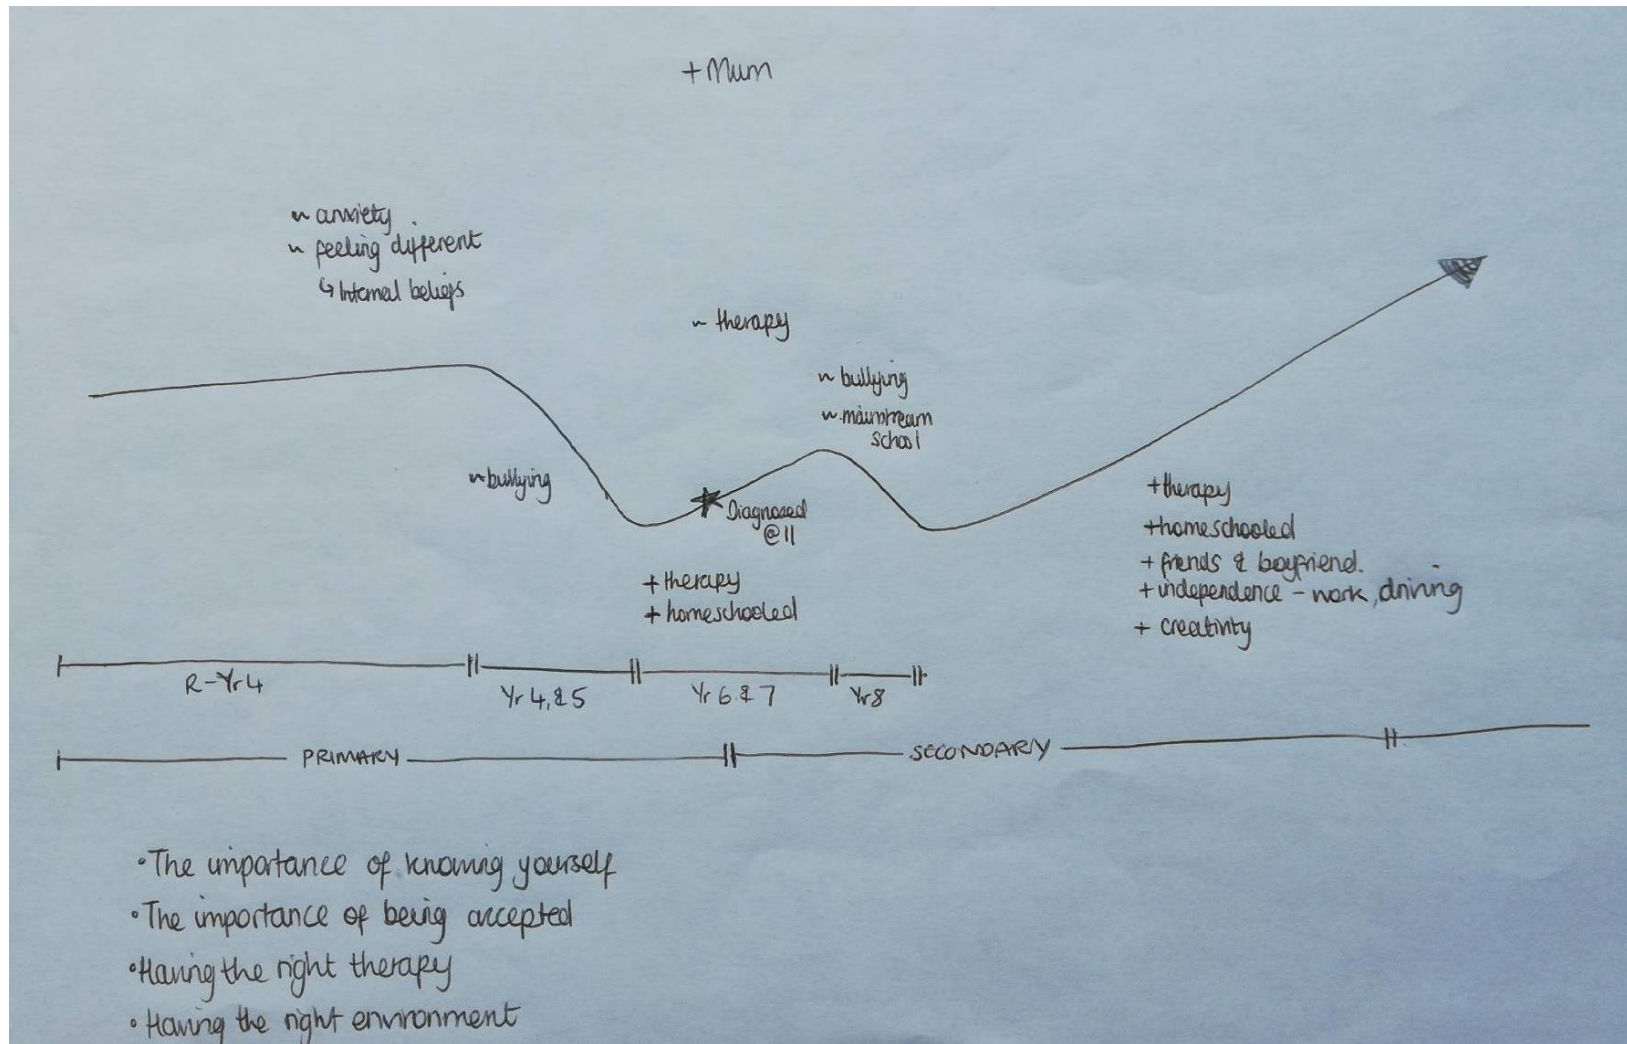 + Mum
~ anxiety
~ feeling different
↳ Internal beliefs
~ therapy
~ bullying
~ mainstream
school
~ bullying
Diagnosed
@ 11
+ therapy
+ homeschooled
+ therapy
+ homeschooled
+ friends & boyfriend.
+ independence - work, driving
+ creativity
R-Yr4
Yr 4, & 5
Yr 6 & 7
Yr8
PRIMARY
SECONDARY
• The importance of knowing yourself
• The importance of being accepted
• Having the right therapy
• Having the right environment